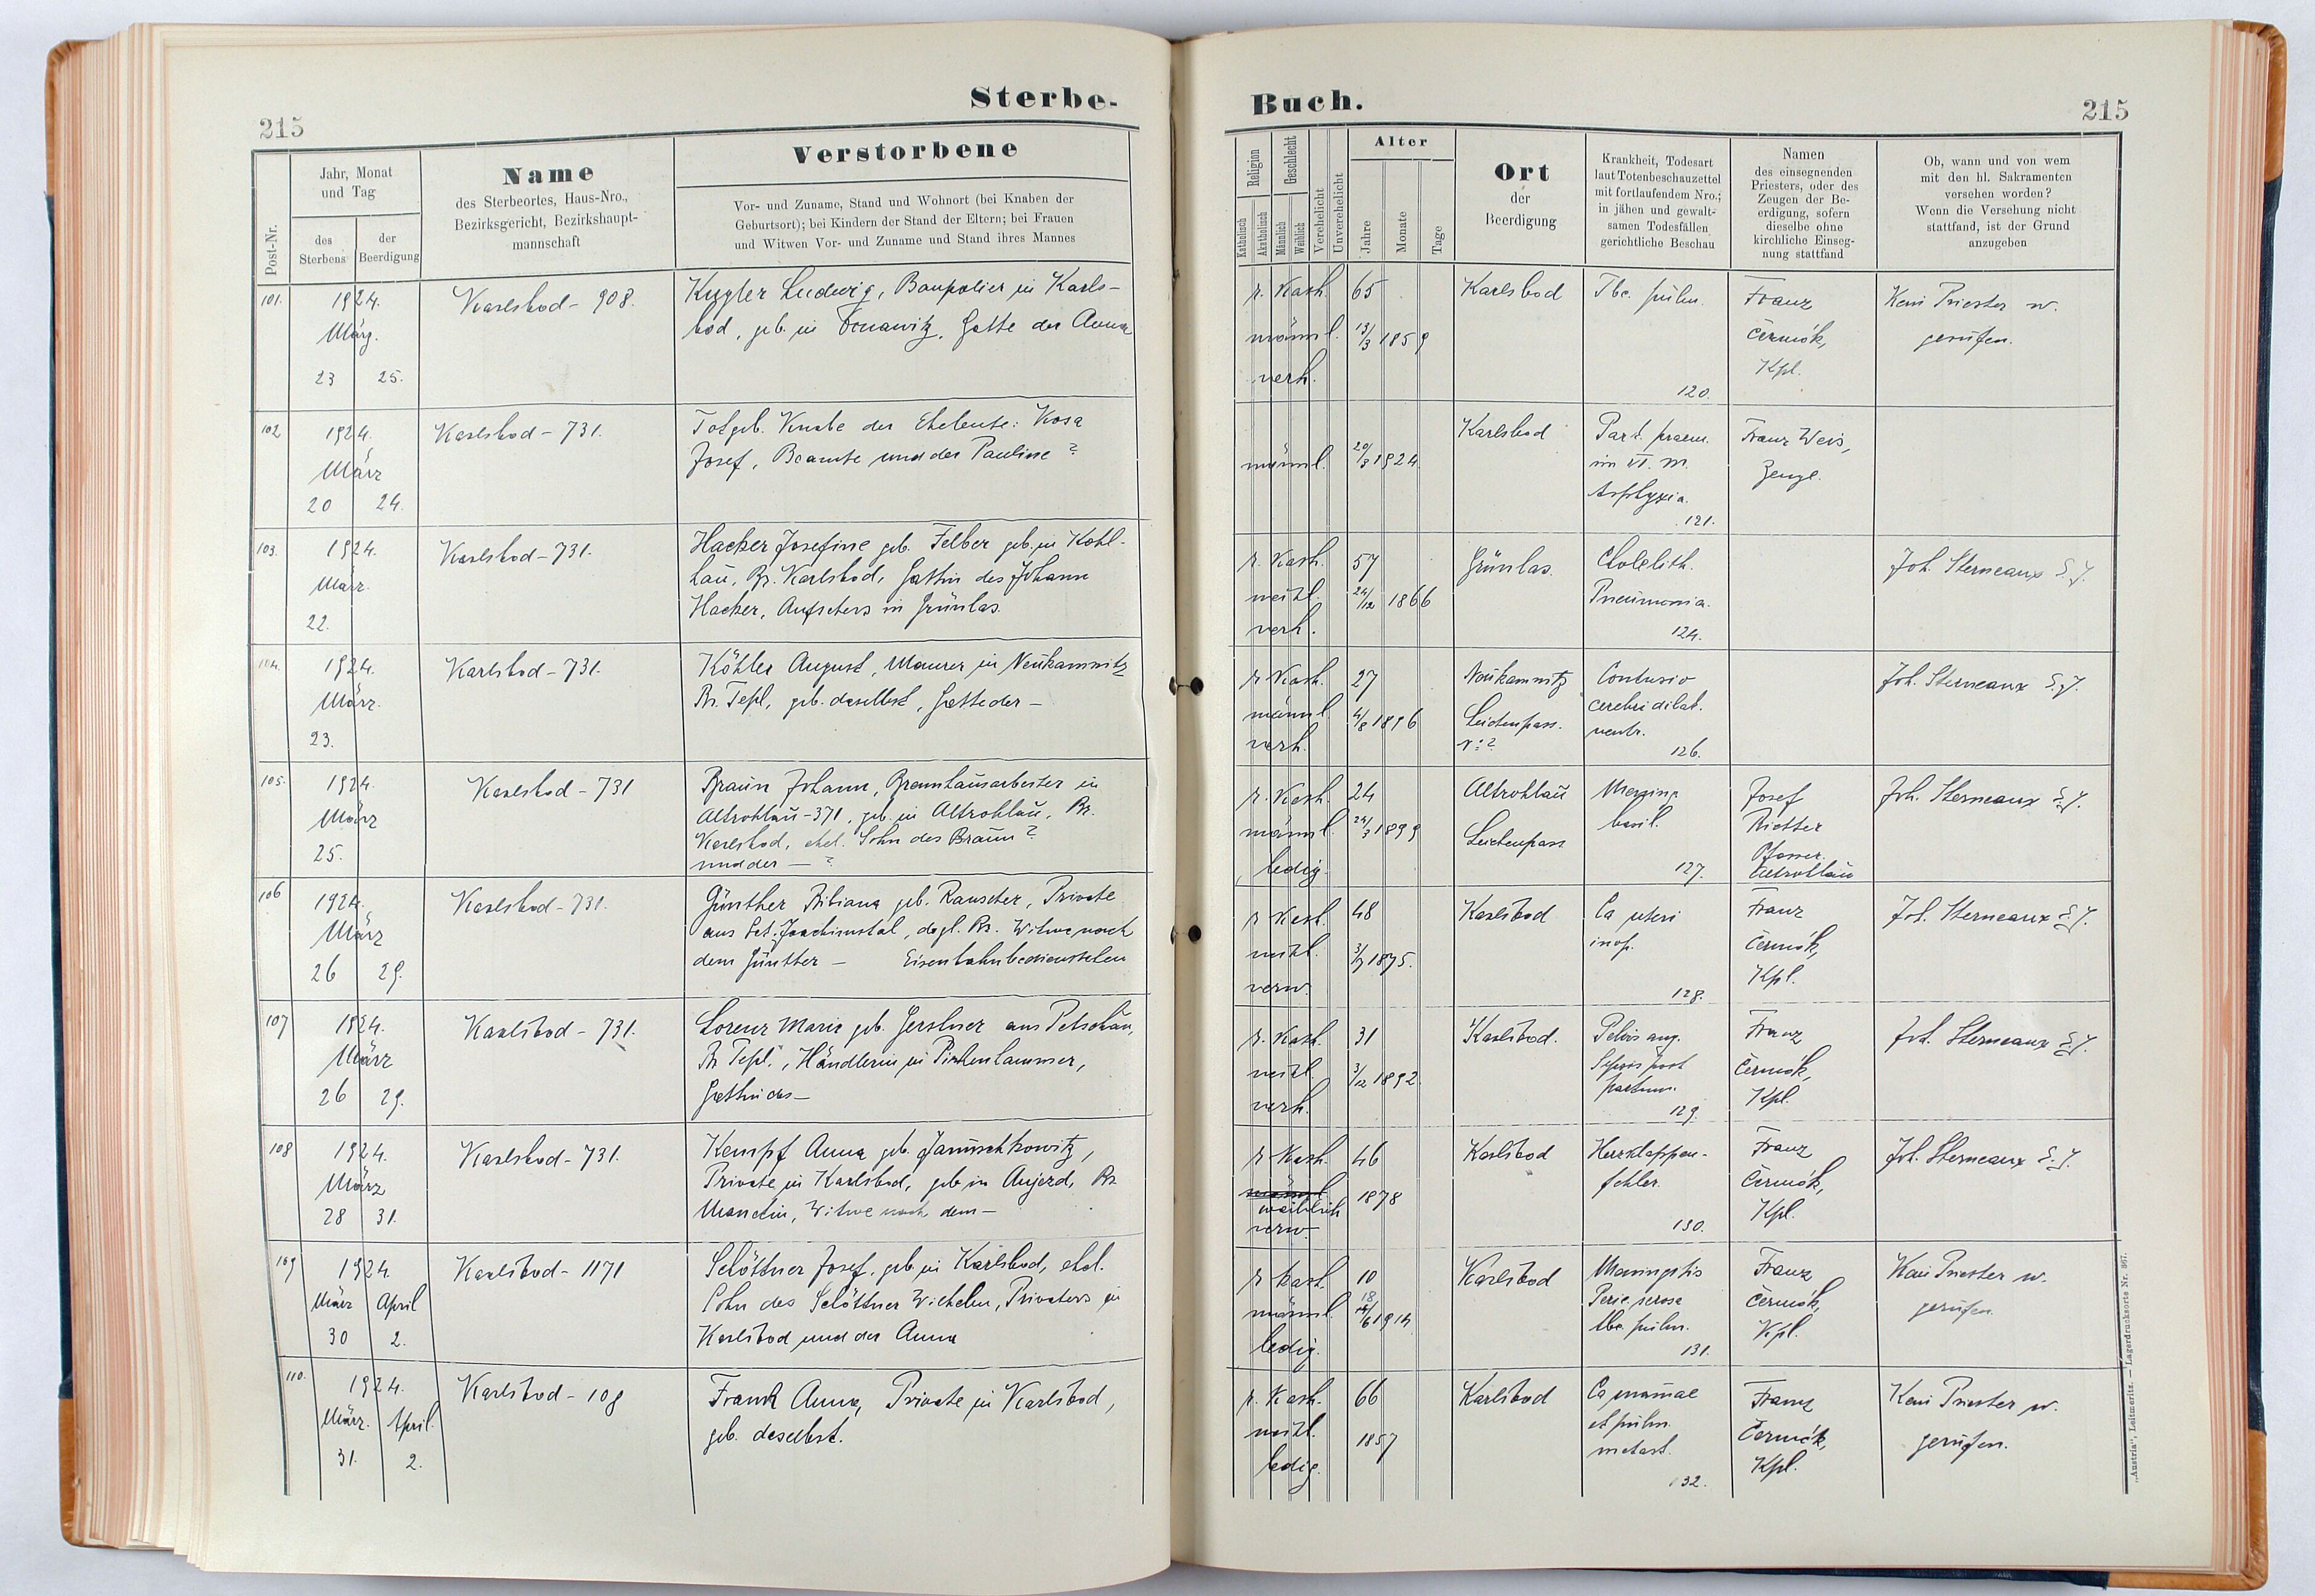 Sterbe-
Buch.
215
215
Post-Nr.
Jahr, Monat
und Tag
des
Sterbens
der
Beerdigung
Name
des Sterbeortes, Haus-Nro.,
Bezirksgericht, Bezirkshaupt-
mannschaft
Verstorbene
Vor- und Zuname, Stand und Wohnort (bei Knaben der
Geburtsort); bei Kindern der Stand der Eltern; bei Frauen
und Witwen Vor- und Zuname und Stand ihres Mannes
Religion
Katholisch
Akatholisch
Geschlecht
Männlich
Weiblich
Verehelicht
Unverehelicht
Alter
Jahre
Monate
Tage
Ort
der
Beerdigung
Krankheit, Todesart
laut Totenbeschauzettel
mit fortlaufendem Nro.;
in jähen und gewalt-
samen Todesfällen
gerichtliche Beschau
Namen
des einsegnenden
Priesters, oder des
Zeugen der Be-
erdigung, sofern
dieselbe ohne
kirchliche Einseg-
nung stattfand
Ob, wann und von wem
mit den hl. Sakramenten
versehen worden?
Wenn die Versehung nicht
stattfand, ist der Grund
anzugeben
101.
1924.
März.
23 25.
Karlsbad - 908.
Kugler Ludwig, Baupolier in Karls-
bad, geb. in Gatte der Anna
r. Kath.
männl.
verh.
65
13/3 1859
Karlsbad
Tbc. pulm.
120.
Franz
Čermák,
Kpl.
Kein Priester w.
gerufen.
102
1924.
März
20 24.
Karlsbad - 731.
Totgeb. Knabe der Eheleute: Kosa
Josef, Beamte und der Pauline ?
männl.
20/3 1924
Karlsbad
Part. praem.
im VI. M.
Asphyxia.
121.
Franz Weis,
Zeuge.
103.
1924.
März.
22.
Karlsbad - 731.
Hacker Josefine geb. Felber geb. in Kohl-
hau, Bz. Karlsbad, Gattin des Johann
Hacker, Aufsehers in Grünlas.
r. Kath.
weibl.
verh.
57
24/12 1866
Grünlas.
Cholelith.
Pneumonia.
124.
Joh. Sterneaux S.J.
104.
1924.
März.
23.
Karlsbad - 731.
Köhler August, Maurer in Neukaunitz
Bz. Tepl, geb. daselbst, Gatte der —
r. Kath.
männl.
verh.
27
4/8 1896
Neukaunitz
Leichenpass.
Contusio
cerebri dilat.
ventr.
126.
Joh. Sterneaux S.J.
105.
1924.
März
25.
Karlsbad - 731
Braun Johann, Brennhausarbeiter in
Altrohlau - 371, geb. in Altrohlau, Bz.
Karlsbad, ehel. Sohn des Braun ?
und der — ?
r. Kath.
männl.
ledig.
24
24/3 1899
Altrohlau
Leichenpass
Mening.
basil.
127.
Josef
Rietter
Pfarrer.
Altrohlau
Joh. Sterneaux S.J.
106
1924.
März
26 29.
Karlsbad - 731.
Günther Bibiana geb. Rauscher, Private
aus Sct. Joachimstal, dsgl. Bz. Witwe nach
dem Günther — Eisenbahnbediensteten
r. Kath.
weibl.
verw.
48
3/7 1875.
Karlsbad
Ca uteri
inop.
128.
Franz
Čermák,
Kpl.
Joh. Sterneaux S.J.
107
1924.
März
26 29.
Karlsbad - 731.
Lorenz Marie geb. Gerstner aus Petschau,
Bz Tepl, Händlerin in Pirkenhammer,
Gattin des —
r. Kath.
weibl.
verh.
31
3/12 1892.
Karlsbad.
Pelvis ang.
Sepsis post
partum.
129.
Franz
Čermák,
Kpl.
Joh. Sterneaux S.J.
108
1924.
März
28 31.
Karlsbad - 731.
Kempf Anna geb. Januschkowitz,
Private in Karlsbad, geb in Aujezd, Bz
Manetin, Witwe nach dem —
r. Kath.
männl
weiblich
verw.
46
1878
Karlsbad
Herzklappen-
fehler.
130.
Franz
Čermák,
Kpl.
Joh. Sterneaux S.J.
109
1924.
März April
30 2.
Karlsbad - 1171
Schöttner Josef, geb. in Karlsbad, ehel.
Sohn des Schöttner Wilhelm, Privaters in
Karlsbad und der Anna
r. Kath.
männl.
ledig.
10
18/6 1914
Karlsbad
Meningitis
Perie serosa
tbc. pulm.
131.
Franz
Čermák,
Kpl.
Kein Priester w.
gerufen
110.
1924.
März. April.
31. 2.
Karlsbad - 108
Frank Anna, Private in Karlsbad,
geb. daselbst.
r. Kath.
weibl.
ledig.
66
1857
Karlsbad
Ca mamae
et pulm.
metast.
132.
Franz
Čermák,
Kpl.
Kein Priester w.
gerufen.
„Austria“, Leitmeritz. — Lagerdrucksorte Nr. 567.